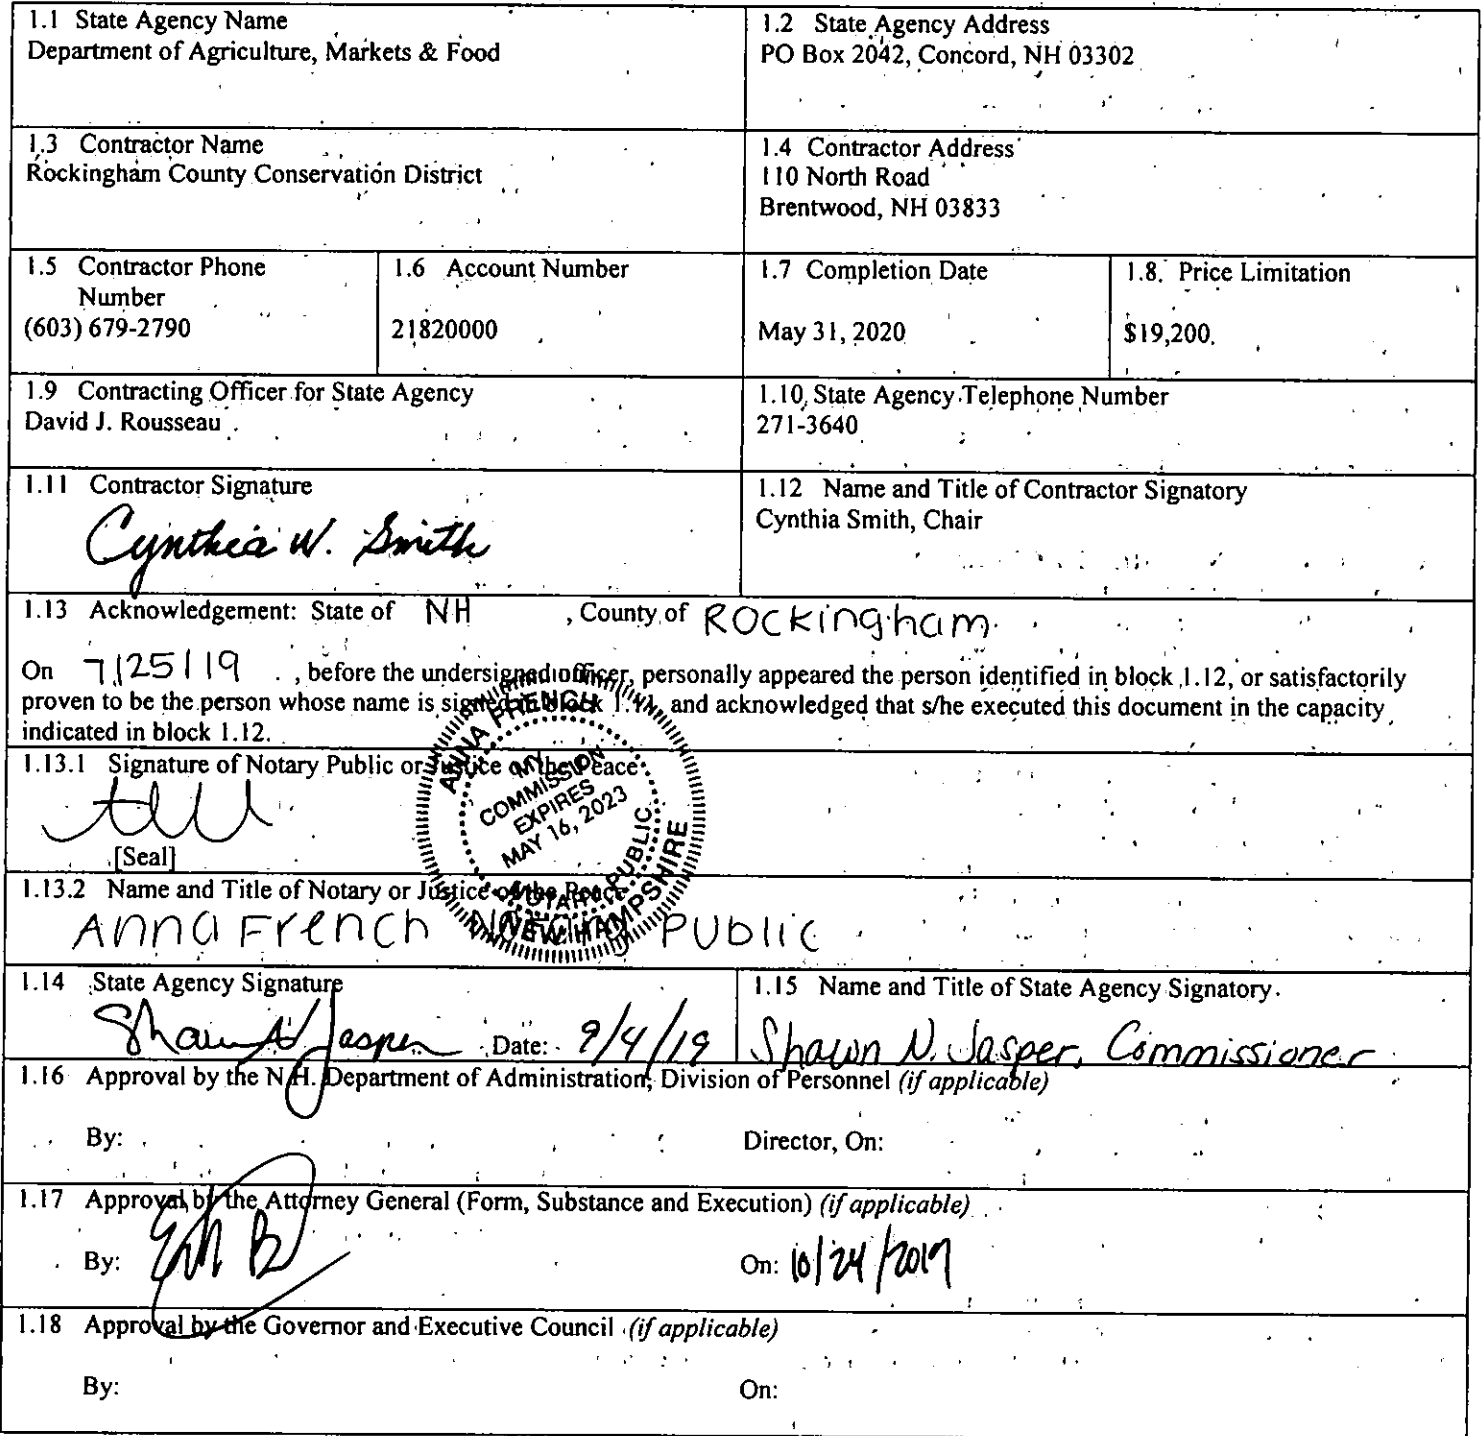 1.1 State Agency Name
Department of Agriculture, Markets & Food
1.2 State Agency Address
PO Box 2042, Concord, NH 03302
1.3 Contractor Name
Rockingham County Conservation District
1.4 Contractor Address
110 North Road
Brentwood, NH 03833
1.5 Contractor Phone
Number
(603) 679-2790
1.6 Account Number
21820000
1.7 Completion Date
May 31, 2020
1.8. Price Limitation
$19,200.
1.9 Contracting Officer for State Agency
David J. Rousseau
1.10 State Agency Telephone Number
271-3640
1.11 Contractor Signature
Cynthia W. Smith
1.12 Name and Title of Contractor Signatory
Cynthia Smith, Chair
1.13 Acknowledgement: State of NH , County of Rockingham
On 7/25/19 , before the undersigned officer, personally appeared the person identified in block 1.12, or satisfactorily
proven to be the person whose name is signed in block 1.11, and acknowledged that s/he executed this document in the capacity
indicated in block 1.12.
1.13.1 Signature of Notary Public or Justice of the Peace
[Seal]
ANNA FRENCH
MY
COMMISSION
EXPIRES
MAY 16, 2023
NOTARY PUBLIC
NEW HAMPSHIRE
1.13.2 Name and Title of Notary or Justice of the Peace
Anna French Notary Public
1.14 State Agency Signature
Shawn N Jasper Date: 9/4/19
1.15 Name and Title of State Agency Signatory
Shawn N. Jasper, Commissioner
1.16 Approval by the N.H. Department of Administration, Division of Personnel (if applicable)
By: Director, On:
1.17 Approval by the Attorney General (Form, Substance and Execution) (if applicable)
By: On: 10/24/2019
1.18 Approval by the Governor and Executive Council (if applicable)
By: On: